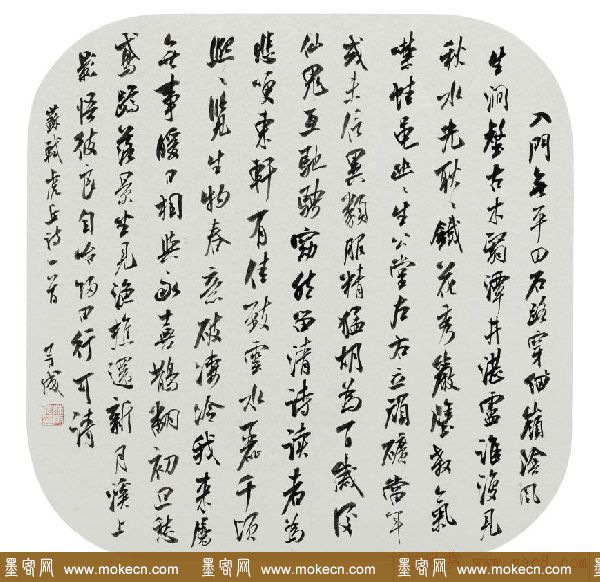 入門無平田石路穿細嶺陰風
生澗壑古木翳潭井湛盧誰復見
秋水光耿々鐵花秀巖壁殺氣
噤蛙黽幽々生公堂左右立頑礦當年
或未信異類服精猛胡為百歲後
仙鬼互馳騁窈然留清詩讀者為
悲哽東軒有佳致雲水麗千頃
熙々覽生物春意破淒冷我來屬
無事暖日相與永喜鵲翻初旦愁
鳶蹲落景坐見漁樵還新月溪上
影悟彼良自咍歸田行可請
蘇軾虎丘詩一首
墨客网 www.mokecn.com 墨客网 www.mokecn.com 墨客网 www.mokecn.com